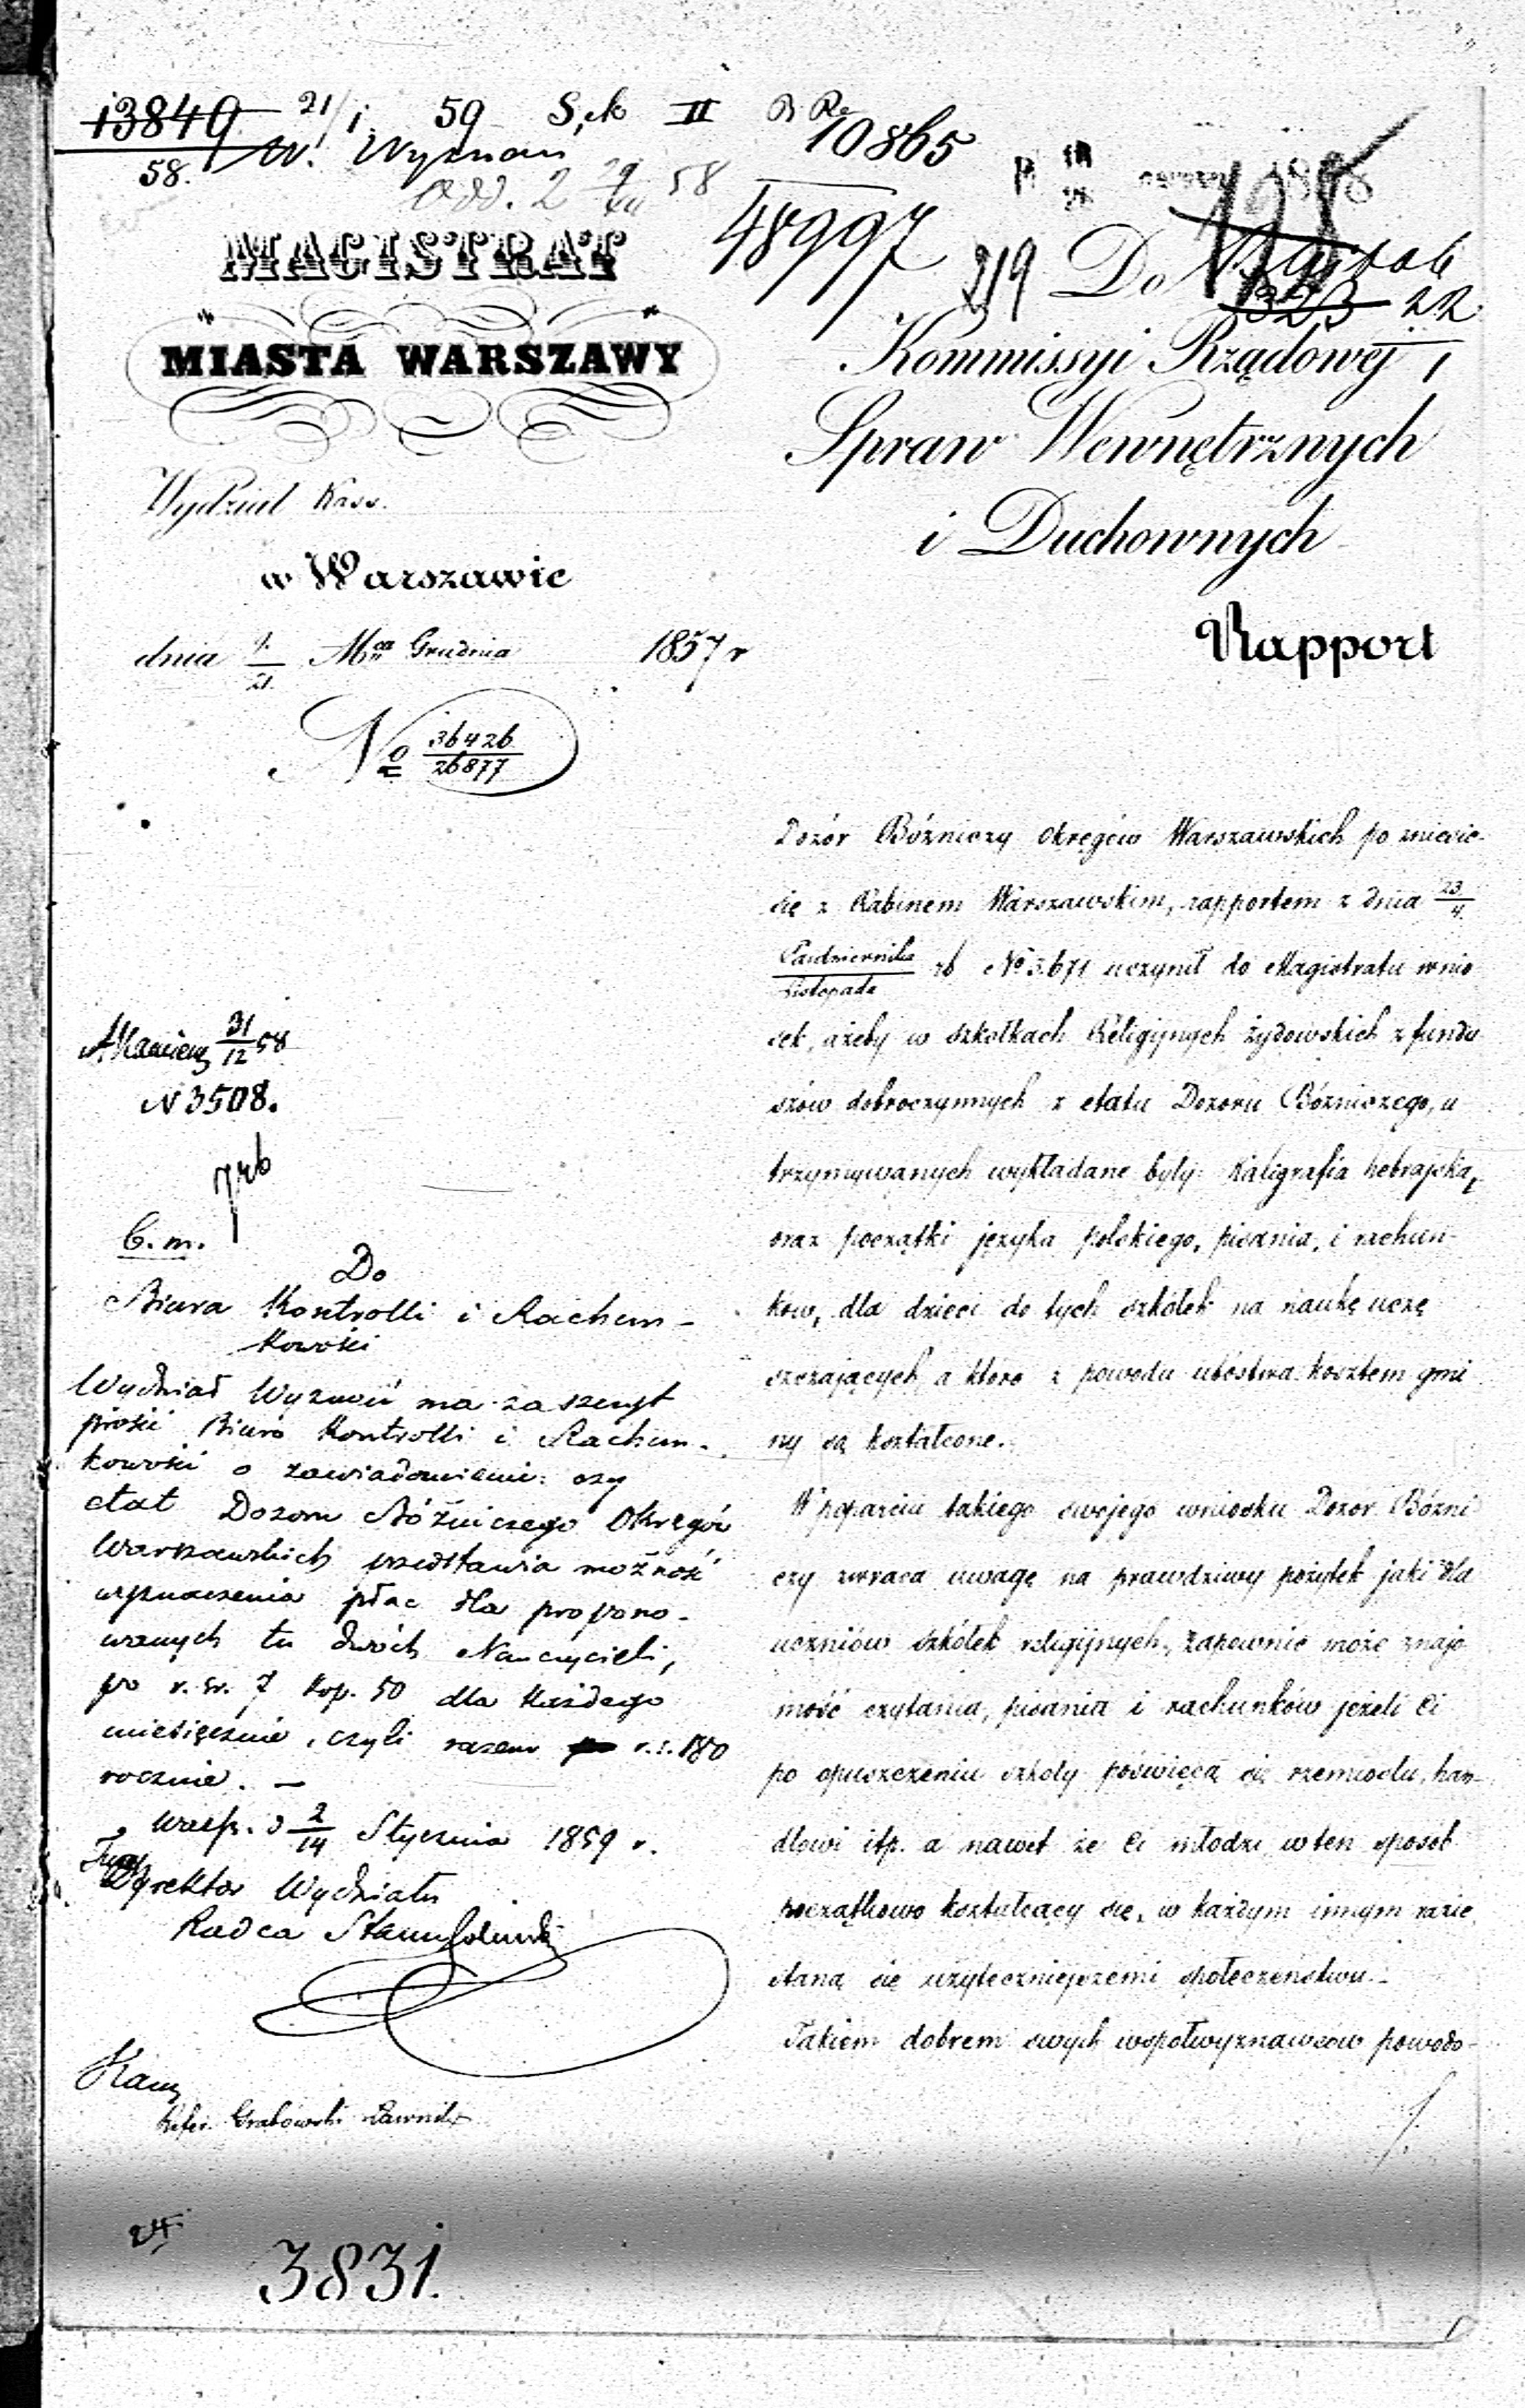 13849
58.
21/1 59 Sek II
W. Wyznań
Odd. 2 29/XII 58
10865
48997
219
22
MAGISTRAT
MIASTA WARSZAWY
Wydział Kass.
w Warszawie
dnia 9/21 Mca Grudnia 1857 r
No 36426/26877
Do
Kommissyi Rządowéj
Spraw Wewnętrznych
i Duchownych
Rapport
Dozór Bóżniczy Okręgów Warszawskich po zniesie-
się z Rabinem Warszawskim, rapportem z dnia 23/4
Październike/Listopada rb No 3.671 uczynił do Magistratu wnio
sek, ażeby w szkółkach Religijnych żydowskich z fundu
szów dobroczynnych z etatu Dozoru Bóżniczego, u
trzymywanych wykładane były: Kaligrafia hebrajska,
oraz początki języka polskiego, pisania, i rachun-
ków, dla dzieci do tych szkółek na naukę uczę
szczających, a które z powodu ubóstwa kosztem gmi
ny są kształcone.
W poparciu takiego swojego wniosku Dozor Bóżni
czy zwraca uwagę na prawdziwy pożytek jaki dla
uczniów szkółek religijnych, zapewnić może znajo
mość czytania, pisania i rachunków jeżeli Ci
po opuszczeniu szkoły poświęcą się rzemiosłu, han-
dlowi itp. a nawet że Ci młodzi w ten sposób
początkowo kształcący się, w każdym innym razie
staną się użyteczniejszemi społeczeństwu.-
Takiem dobrem swych współwyznawców powodo-
31/12 58
N 3508.
C. m.
Do
Biura Kontrolli i Rachun-
kowości
Wydział Wyznań ma zaszczyt
prosić Biuro Kontrolli i Rachun-
kowości o zawiadomienie: czy
etat Dozoru Bóżniczego Okręgów
Warszawskich przedstawia możność
wyznaczenia płac dla propono-
wanych tu dwóch Nauczycieli,
po r. sr. 7 kop. 50 dla każdego
miesięcznie, czyli razem r. s. 180
rocznie. —
Warsz. d 2/14 Stycznia 1859 r.
Dyrektor Wydziału
Radca Stanu
Grabowski Ławnik
24
3831.